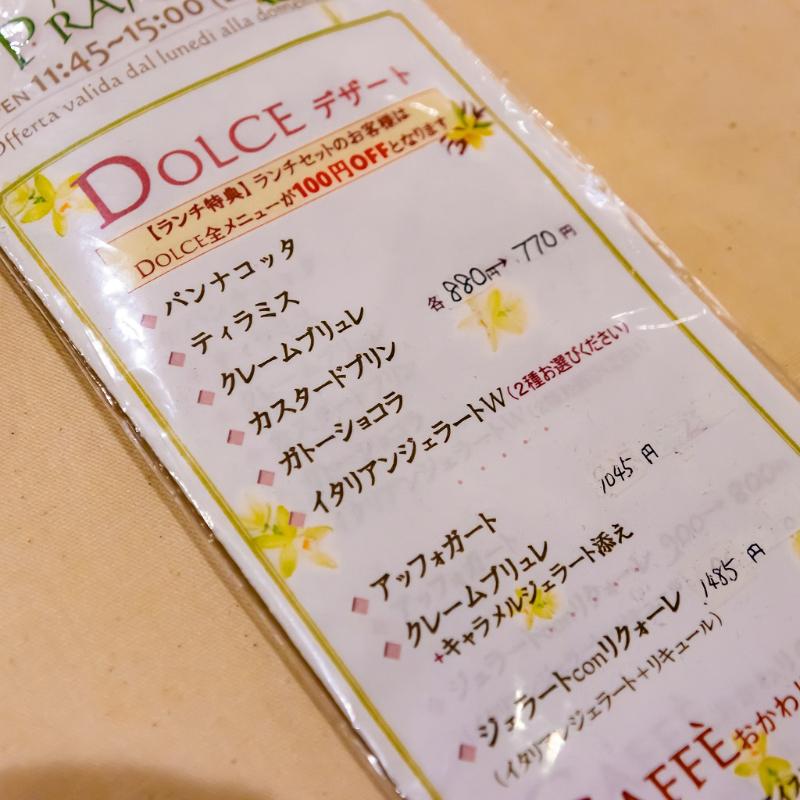 PRA
EN 11:45~15:00
Offerta valida dal lunedì alla dome
DOLCE デザート
【ランチ特典】ランチセットのお客様は
DOLCE全メニューが100円OFFとなります
パンナコッタ
ティラミス
各880円→770円
クレームブリュレ
カスタードプリン
ガトーショコラ
イタリアンジェラートW(2種お選びください)
1045円
アッフォガート
クレームブリュレ
+キャラメルジェラート添え
1485円
ジェラートconリクォーレ
(イタリアンジェラート+リキュール)
AFFÈ おかわり